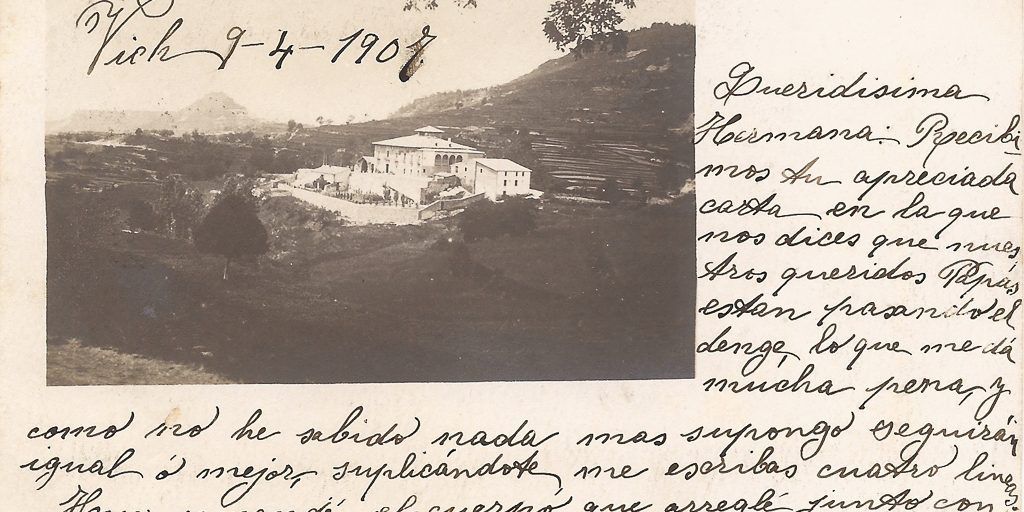 Vich 9-4-1907
Queridisima
Hermana: Recibi-
mos tu apreciada
carta en la que
nos dices que nues
tros queridos Papás
estan pasando el
denge, lo que me dá
mucha pena, y
como no he sabido nada mas supongo seguirán
igual ó mejor, suplicándote me escribas cuatro lineas.
el cuerpo que arreglé junto con